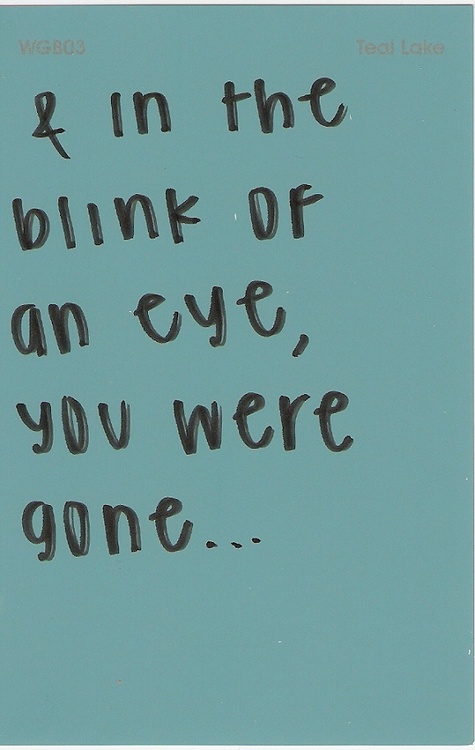 WG803 Teal Lake
& in the
blink of
an eye,
you were
gone...